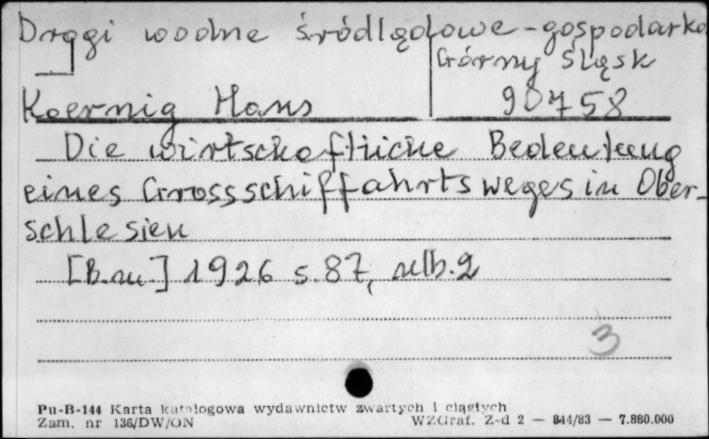 Drogi wodne śródlądowe - gospodarka
Górny Śląsk
Koernig Hans 90758
Die wirtschaftliche Bedeutung
eines Grossschiffahrtsweges in Ober-
schlesien
[B.m.] 1926 s. 87, nlb. 2
3
Pu-B-144 Karta katalogowa wydawnictw zwartych i ciągłych
Zam. nr 136/DW/ON WZGraf. Z-d 2 — 844/83 — 7.880.000